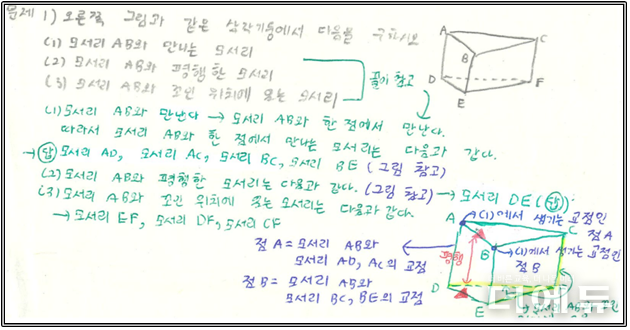 문제 1) 오른쪽 그림과 같은 삼각기둥에서 다음을 구하시오
(1) 모서리 AB와 만나는 모서리
(2) 모서리 AB와 평행한 모서리
(3) 모서리 AB와 꼬인 위치에 있는 모서리
풀이 참고
A
C
B
D
F
E
(1) 모서리 AB와 만난다 → 모서리 AB와 한 점에서 만난다.
따라서 모서리 AB와 한 점에서 만나는 모서리는 다음과 같다.
→ 답 모서리 AD, 모서리 AC, 모서리 BC, 모서리 BE (그림 참고)
(2) 모서리 AB와 평행한 모서리는 다음과 같다. (그림 참고) → 모서리 DE (답)
(3) 모서리 AB와 꼬인 위치에 있는 모서리는 다음과 같다.
→ 모서리 EF, 모서리 DF, 모서리 CF
점 A = 모서리 AB와
모서리 AD, AC의 교점
점 B = 모서리 AB와
모서리 BC, BE의 교점
A
(1)에서 생기는 교점인
점 A
C
평행
B
(1)에서 생기는 교점인
점 B
D
E
더에듀